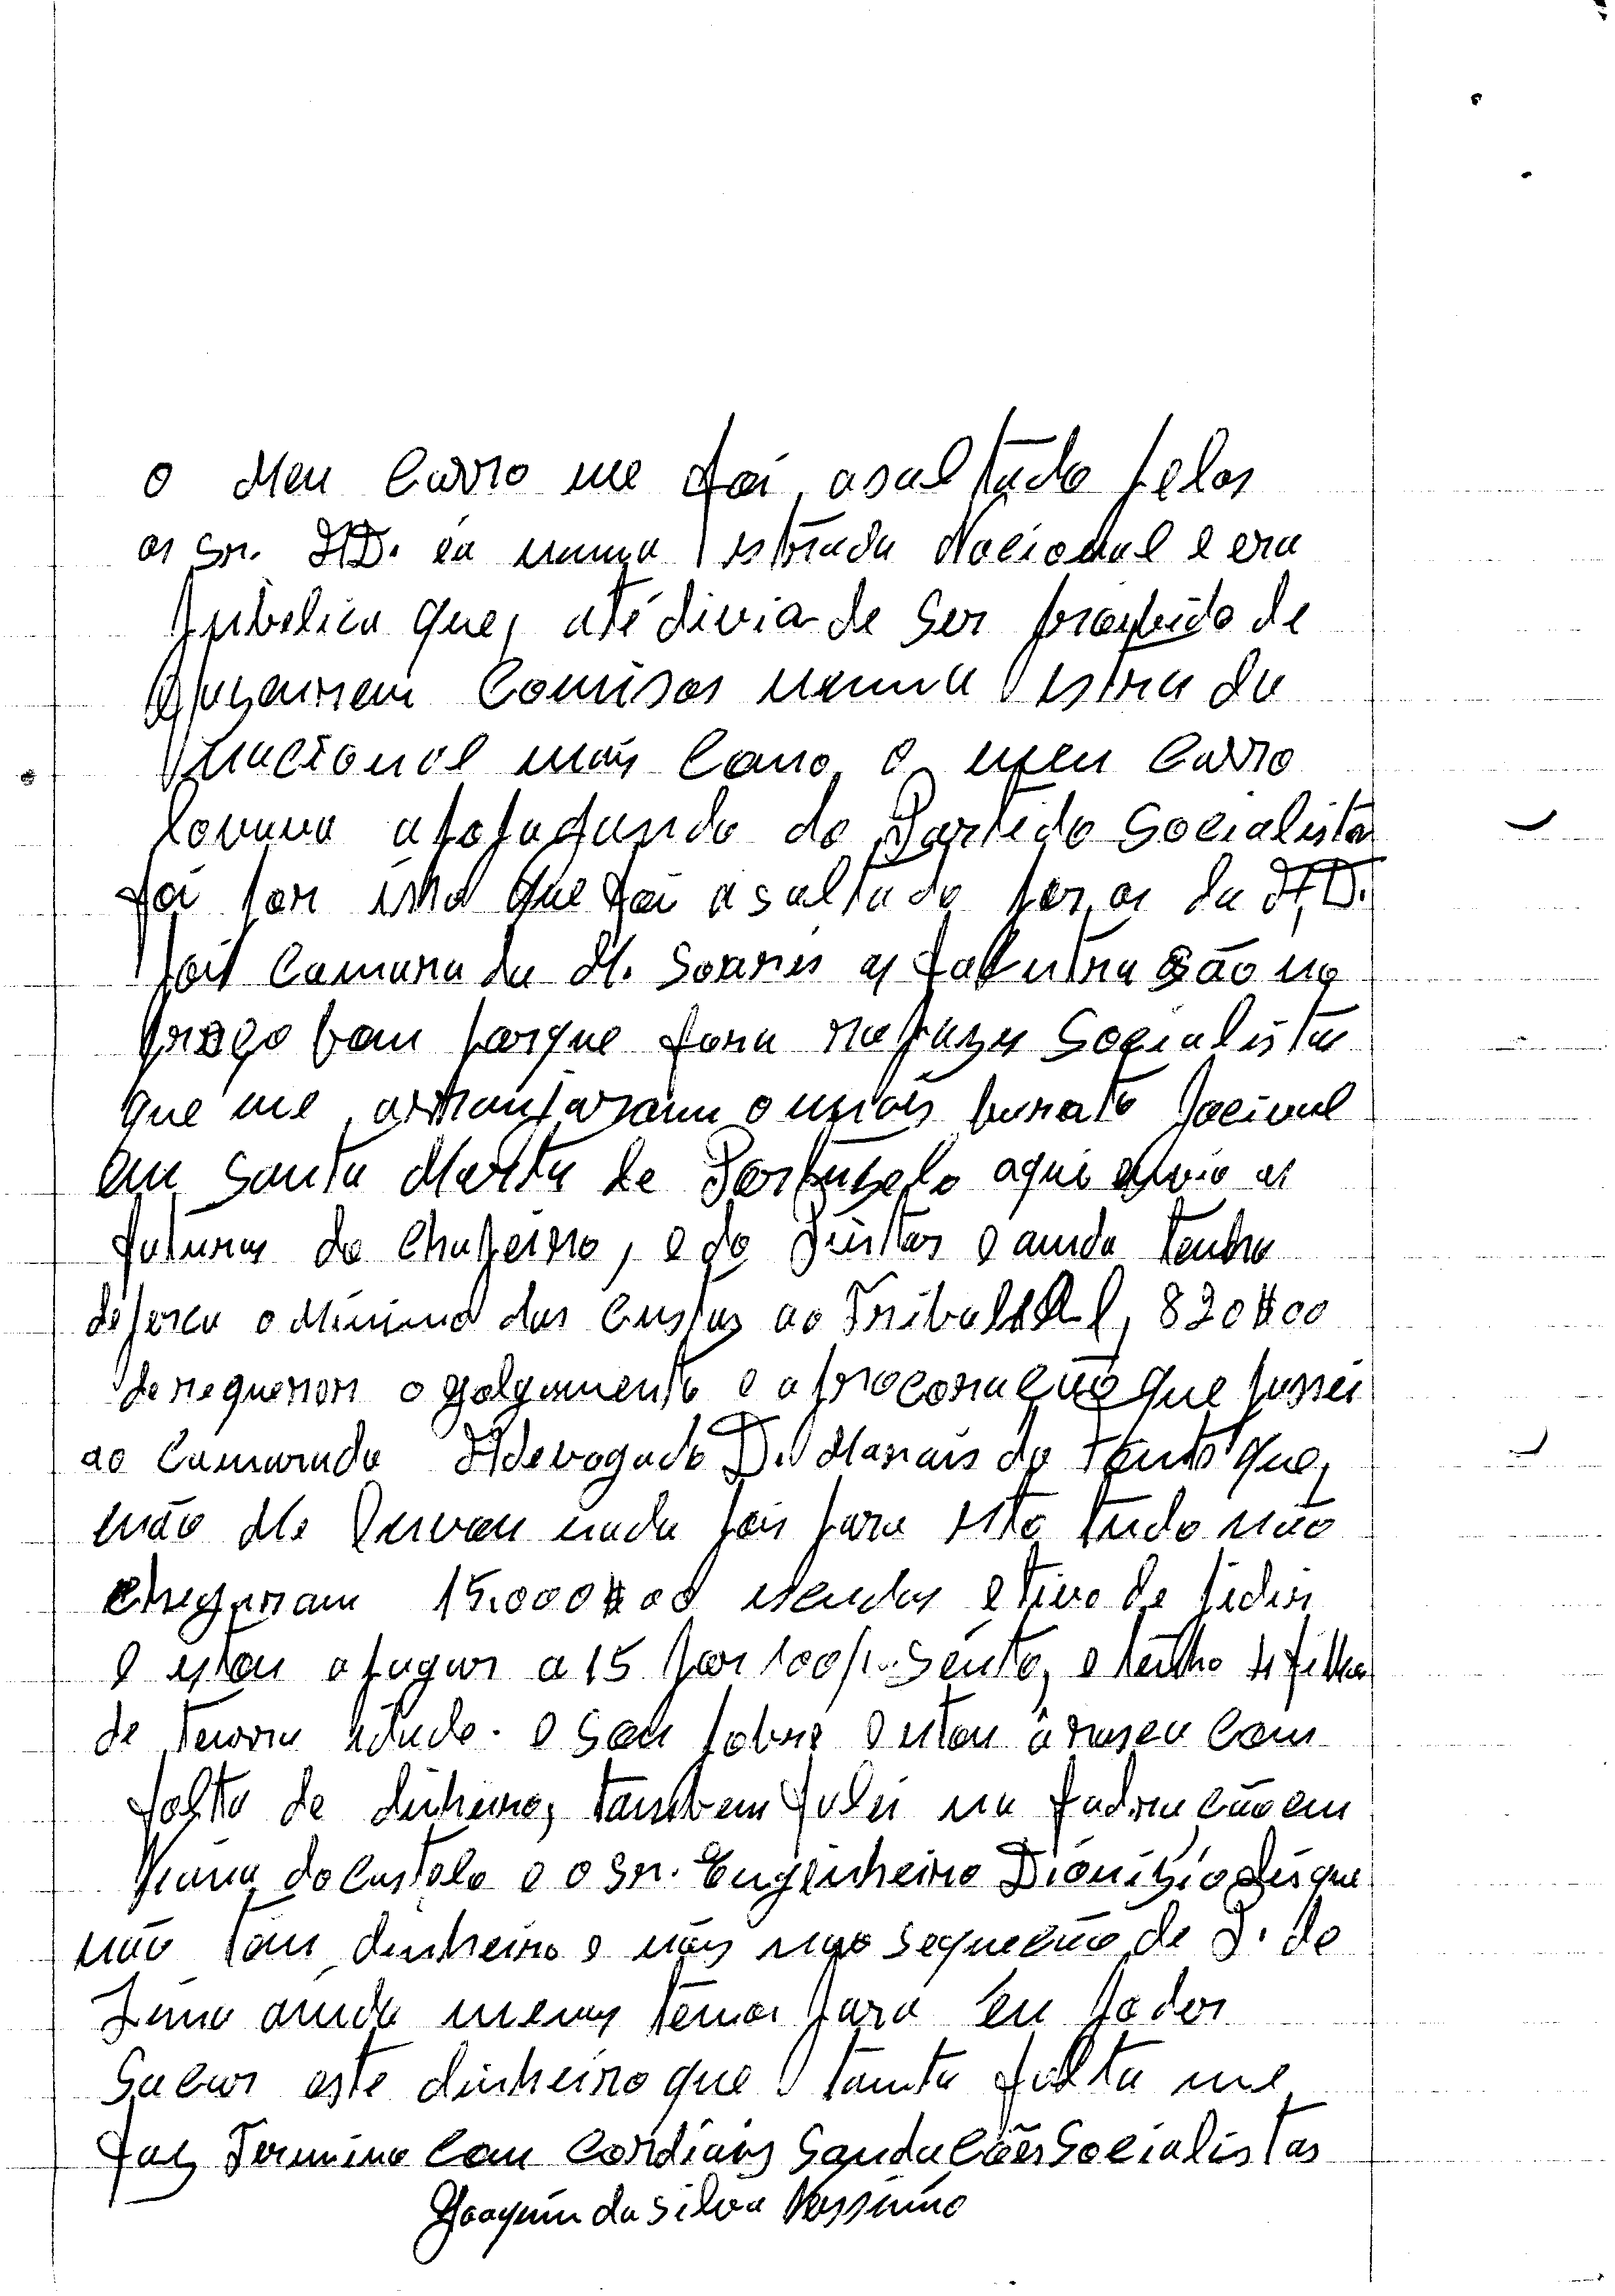 o Meu Carro me foi asaltado pelos
os Sr. AD. en numa estrada Nacional e era
pubelica que, até divia de ser proybido de
fazarem Comisos numa estrada
nacional mais Como o meu Carro
levava apopaganda do Partido Socialista
foi por isso que foi asaltado por os da A,D.
pois Camarada M. Soares as faturas são no
preço bom porque foru rapazes Socialistas
que me arranjaram o mais barato pocivel
em Santa Marta de Portuzelo aqui envio as
faturas do Chapeiro, e do Pintor e ainda tenho
defesa o Minimo das Custas ao Tribunal, 820$00
de requerer o golgamento e aprocoração que passei
ao Camarada Adevogado D. Marais do que,
não Me levou nada pois para isto tudo não
chegaram 15.000$00 escudos e tive de pidir
e estou apagar a 15 por 100/. sento, e tenho filhos
de tenrra idade. e Sou pobre e estou arrasca com
falta de dinheiro, tambem falei na fadração em
Viana do Castelo e o Sr. Engenheiro Dionizio dis que
não tem dinheiro e nós na sequeção de P. do
Lima ainda menos temos para eu poder
Sacar este dinheiro que tanta falta me
faz Termino Com Cordiais Saudações Socialistas
Joaquim da Silva